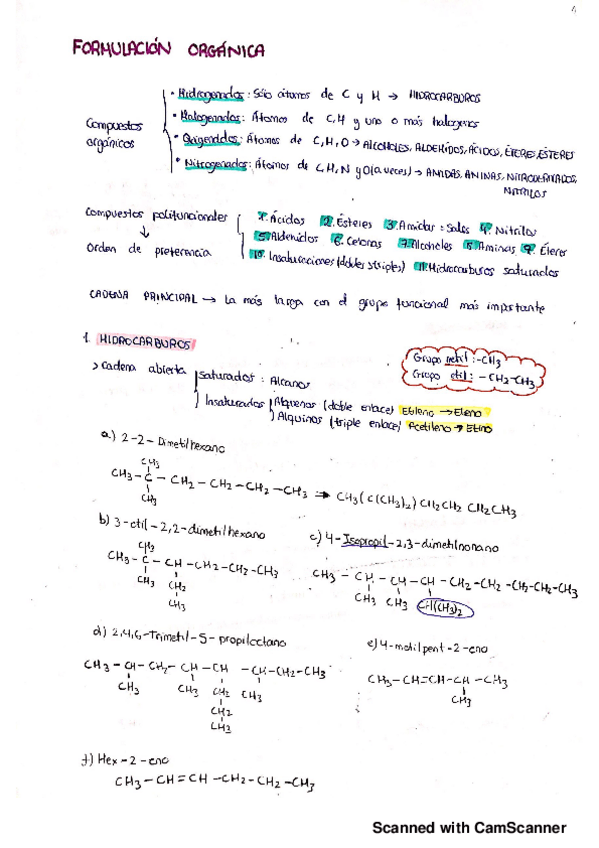 FORMULACIÓN ORGÁNICA
Compuestos orgánicos
• Hidrogenados: Sólo átomos de C y H → HIDROCARBUROS
• Halogenados: Átomos de C, H y uno o más halógenos
• Oxigenados: Átomos de C, H, O → ALCOHOLES, ALDEHÍDOS, ÁCIDOS, ÉTERES, ÉSTERES
• Nitrogenados: Átomos de C, H, N y O (a veces) → AMIDAS, AMINAS, NITRODERIVADOS, NITRILOS
Compuestos polifuncionales
↓
Orden de preferencia
1. Ácidos 2. Ésteres 3. Amidas = Sales 4. Nitrilos
5. Aldehidos 6. Cetonas 7. Alcoholes 8. Aminas 9. Éteres
10. Insaturaciones (dobles y triples) 11. Hidrocarburos saturados
CADENA PRINCIPAL → La más larga con el grupo funcional más importante
1. HIDROCARBUROS
Grupo metil: -CH3
Grupo etil: -CH2-CH3
> Cadena abierta
Saturados: Alcanos
Insaturados
Alquenos (doble enlace) Etileno → Eteno
Alquinos (triple enlace) Acetileno → Etino
a) 2-2-Dimetilhexano
CH3
CH3-C-CH2-CH2-CH2-CH3 → CH3(C(CH3)2)CH2CH2CH2CH3
CH3
b) 3-etil-2,2-dimetilhexano
CH3
CH3-C-CH-CH2-CH2-CH3
CH3 CH2
CH3
c) 4-Isopropil-2,3-dimetilnonano
CH3-CH-CH-CH-CH2-CH2-CH2-CH2-CH3
CH3 CH3 CH(CH3)2
d) 2,4,6-Trimetil-5-propiloctano
CH3-CH-CH2-CH-CH-CH-CH2-CH3
CH3 CH3 CH2 CH3
CH2
CH3
e) 4-metilpent-2-eno
CH3-CH=CH-CH-CH3
CH3
f) Hex-2-eno
CH3-CH=CH-CH2-CH2-CH3
Scanned with CamScanner